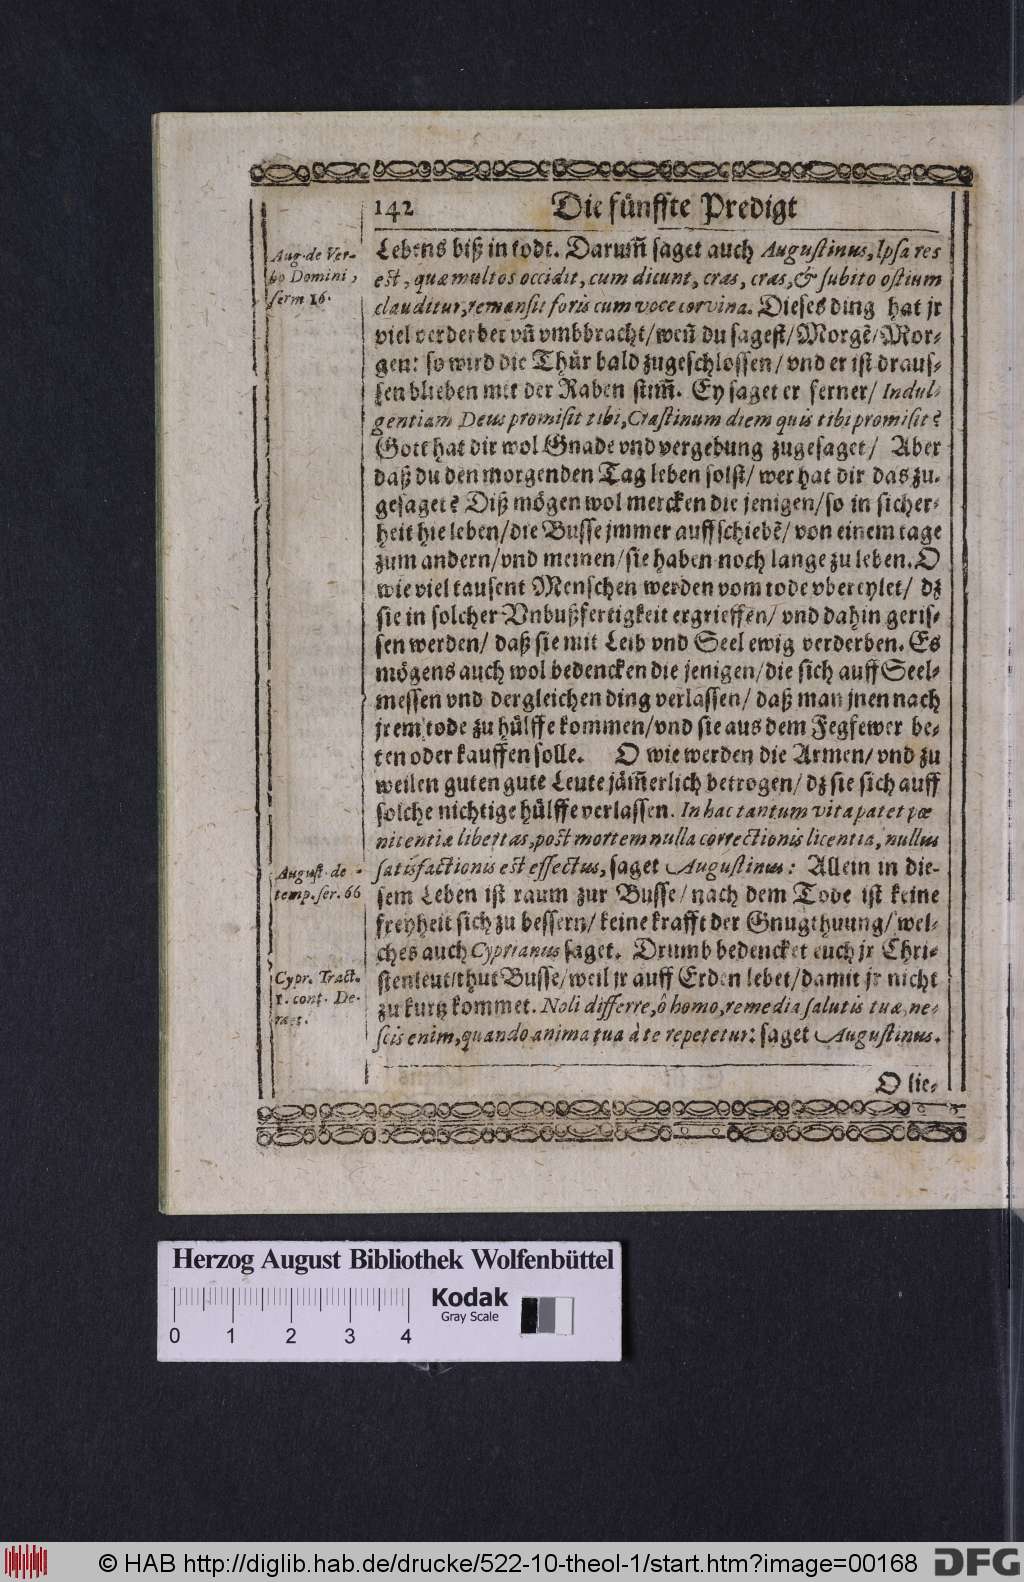 142 Die fünffte Predigt
Aug. de Ver-
bo Domini,
serm 16.
Lebens biß in todt. Darum̃ saget auch Augustinus, Ipsa res
est, quæ multos occidit, cum dicunt, cras, cras, & subito ostium
clauditur, remansit foris cum voce corvina. Dieses ding hat jr
viel verderbet vñ vmbbracht/ weñ du sagest/ Morgẽ/ Mor-
gen: so wird die Thür bald zugeschlossen/ vnd er ist draus-
sen blieben mit der Raben stim̃. Ey saget er ferner/ Indul-
gentiam Deus promisit tibi, Crastinum diem quis tibi promisit?
Gott hat dir wol Gnade vnd vergebung zugesaget/ Aber
daß du den morgenden Tag leben solst/ wer hat dir das zu-
gesaget? Diß mögen wol mercken die jenigen/ so in sicher-
heit hie leben/ die Busse jmmer auffschiebẽ/ von einem tage
zum andern/ vnd meinen/ sie haben noch lange zu leben. O
wie viel tausent Menschen werden vom tode vbereylet/ dz
sie in solcher Vnbußfertigkeit ergrieffen/ vnd dahin geris-
sen werden/ daß sie mit Leib vnd Seel ewig verderben. Es
mögens auch wol bedencken die jenigen/ die sich auff Seel-
messen vnd dergleichen ding verlassen/ daß man jnen nach
jrem tode zu hülffe kommen/ vnd sie aus dem Fegfewer be-
ten oder kauffen solle. O wie werden die Armen/ vnd zu
weilen guten gute Leute jäm̃erlich betrogen/ dz sie sich auff
solche nichtige hülffe verlassen. In hac tantum vita patet pœ
nitentiæ libertas, post mortem nulla correctionis licentia, nullus
August. de
temp. ser. 66
satisfactionis est effectus, saget Augustinus: Allein in die-
sem Leben ist raum zur Busse/ nach dem Tode ist keine
freyheit sich zu bessern/ keine krafft der Gnugthuung/ wel-
ches auch Cyprianus saget. Drumb bedencket euch jr Chri-
Cypr. Tract.
1. cont. De-
met.
stenleut/ thut Busse/ weil jr auff Erden lebet/ damit jr nicht
zu kurtz kommet. Noli differre, ô homo, remedia salutis tuæ, ne-
scis enim, quando anima tua à te repetetur: saget Augustinus.
O lie-
Herzog August Bibliothek Wolfenbüttel
Kodak
Gray Scale
0 1 2 3 4
© HAB http://diglib.hab.de/drucke/522-10-theol-1/start.htm?image=00168
DFG